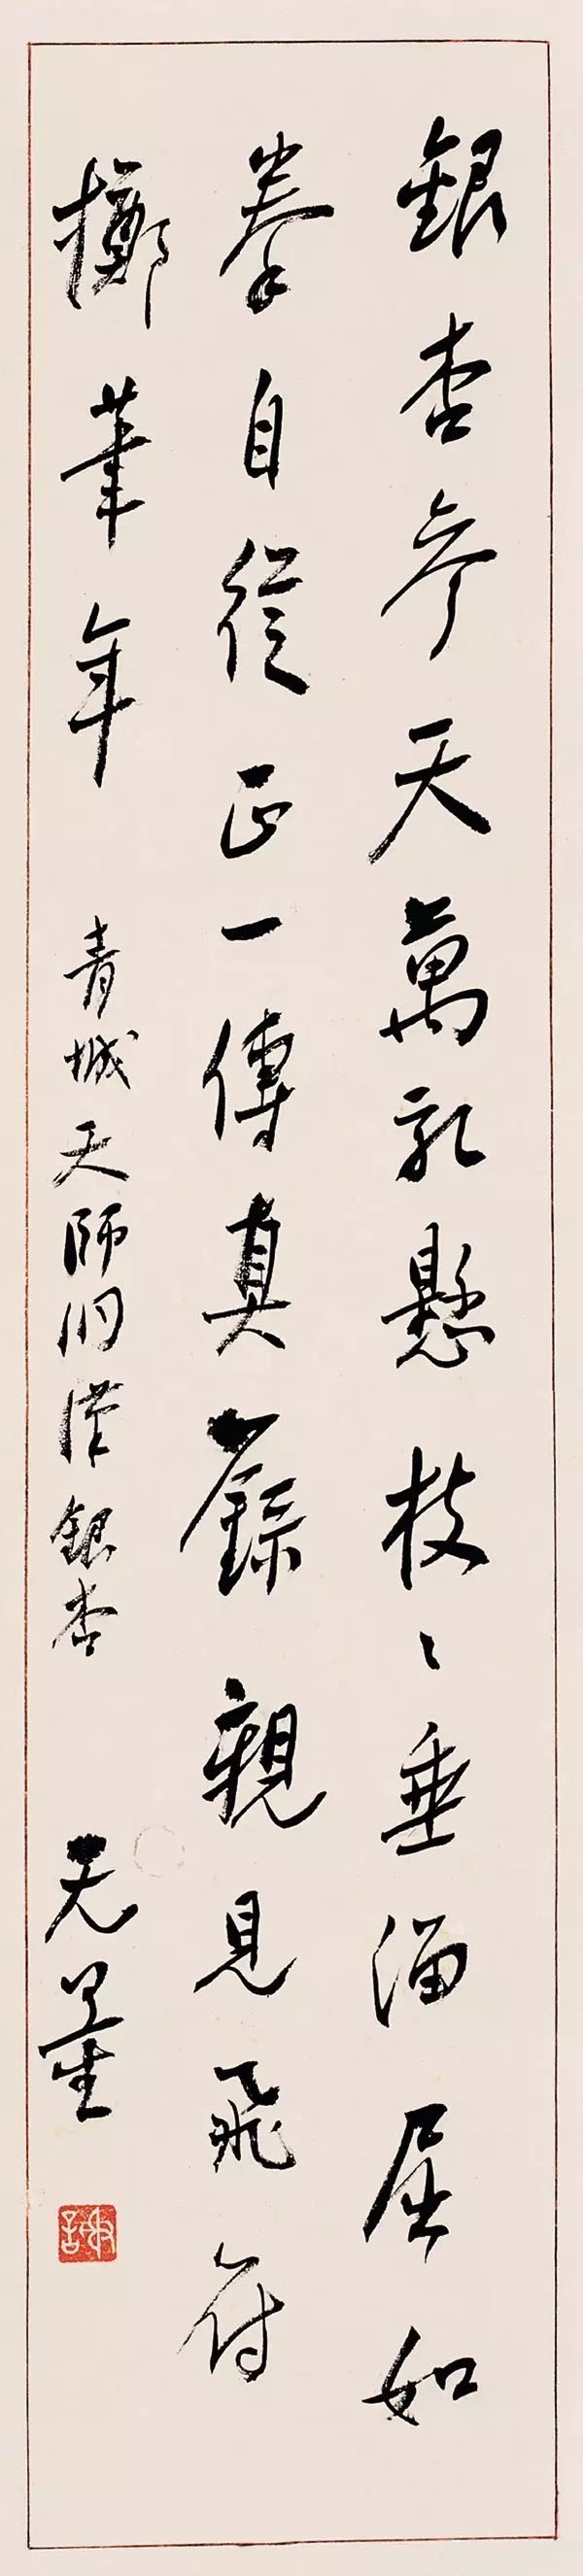 銀杏參天萬乳懸枝〻垂溜屈如
拳自從正一傳真籙親見飛符
擲筆年 青城天師洞漢銀杏 无量